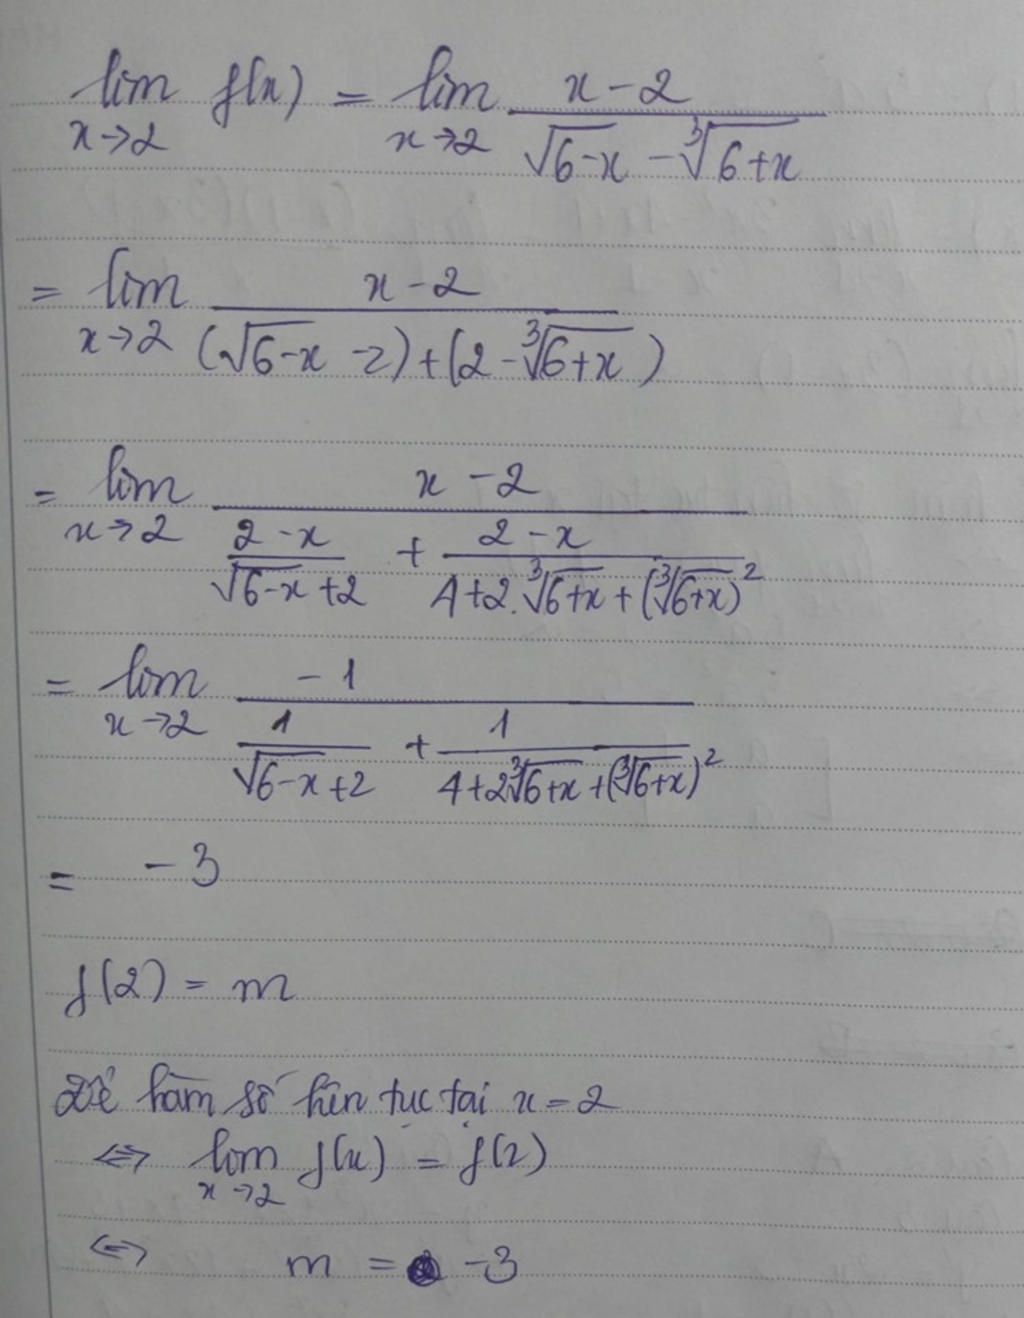 lim f(x) = lim x-2
x→2 x→2 √6-x - ∛6+x
= lim x-2
x→2 (√6-x -2)+(2-∛6+x)
= lim x-2
x→2 2-x + 2-x
√6-x +2 4+2.∛6+x+(∛6+x)²
= lim -1
x→2 1 + 1
√6-x +2 4+2∛6+x+(∛6+x)²
= -3
f(2) = m
Để hàm số liên tục tại x=2
⇔ lim f(x) = f(2)
x→2
⇔ m = -3